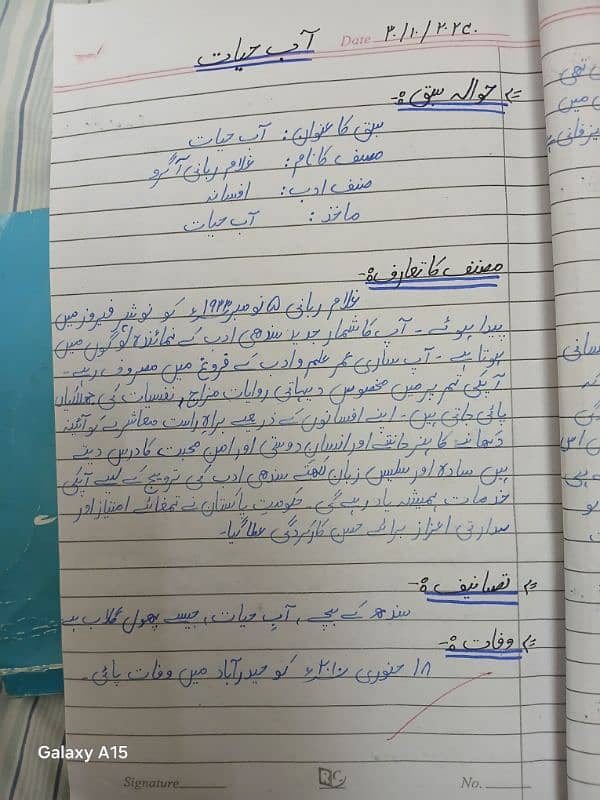 Date ۳۰/۱۰/۲۰۲۵
آب حیات
حوالہ سبق:-
سبق کا عنوان: آب حیات
مصنف کا نام: غلام ربانی آگرو
صنف ادب: افسانہ
ماخذ: آب حیات
مصنف کا تعارف:-
غلام ربانی ۵ نومبر ۱۹۳۳ء کو نوشہرو فیروز میں
پیدا ہوئے۔ آپ کا شمار جدید سندھی ادب کے نمائندہ لوگوں میں
ہوتا ہے۔ آپ ساری عمر علم و ادب کے فروغ میں مصروف رہے۔
آپکی تحریر میں مخصوص دیہاتی روایات مزاج، نفسیات کی جھلکیاں
پائی جاتی ہیں۔ اپنے افسانوں کے ذریعے براہ راست معاشرے کو آئینہ
دکھانے کا ہنر جانتے اور انسان دوستی اور امن محبت کا درس دیتے
ہیں سادہ اور سلیس زبان لکھتے سندھی ادب کی ترویج کے لیے آپکی
خدمات ہمیشہ یاد رہے گی۔ حکومت پاکستان نے تمغائے امتیاز اور
صدارتی اعزاز برائے حسن کارکردگی عطا کیا۔
تصانیف:-
سندھ کے بچے، آبِ حیات، جیسے پھول گلاب
وفات:-
۱۸ جنوری ۲۰۱۰ء کو حیدرآباد میں وفات پائی۔
Galaxy A15
Signature
RC
No.